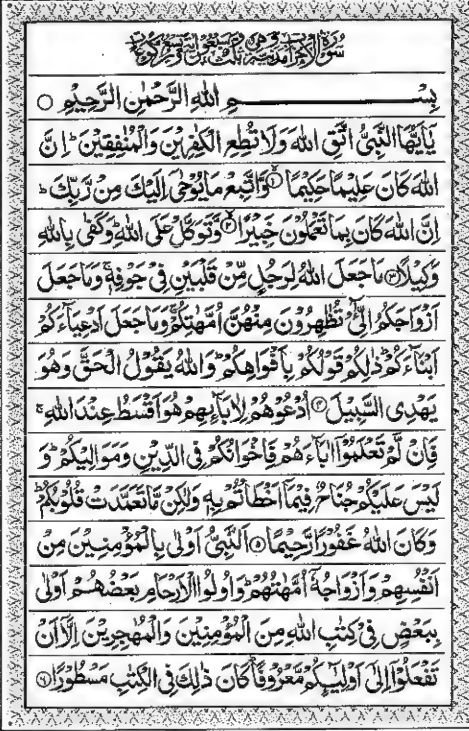 سُوْرَةُ الْاَحْزَابِ مَدَنِيَّةٌ وَّهِيَ ثَلٰثٌ وَّسَبْعُوْنَ اٰيَةً وَّتِسْعُ رُكُوْعَاتٍ
بِسْمِ اللهِ الرَّحْمٰنِ الرَّحِيْمِ ○
يٰۤاَيُّهَا النَّبِيُّ اتَّقِ اللهَ وَلَا تُطِعِ الْكٰفِرِيْنَ وَالْمُنٰفِقِيْنَ ؕ اِنَّ
اللهَ كَانَ عَلِيْمًا حَكِيْمًا ۙ﴿۱﴾ وَّاتَّبِعْ مَا يُوْحٰۤى اِلَيْكَ مِنْ رَّبِّكَ ؕ
اِنَّ اللهَ كَانَ بِمَا تَعْمَلُوْنَ خَبِيْرًا ۙ﴿۲﴾ وَّتَوَكَّلْ عَلَى اللهِ ؕ وَكَفٰى بِاللهِ
وَكِيْلًا ﴿۳﴾ مَا جَعَلَ اللهُ لِرَجُلٍ مِّنْ قَلْبَيْنِ فِيْ جَوْفِهٖ ۚ وَمَا جَعَلَ
اَزْوَاجَكُمُ الّٰٓـِٔيْ تُظٰهِرُوْنَ مِنْهُنَّ اُمَّهٰتِكُمْ ۚ وَمَا جَعَلَ اَدْعِيَآءَكُمْ
اَبْنَآءَكُمْ ؕ ذٰلِكُمْ قَوْلُكُمْ بِاَفْوَاهِكُمْ ؕ وَاللهُ يَقُوْلُ الْحَقَّ وَهُوَ
يَهْدِي السَّبِيْلَ ﴿۴﴾ اُدْعُوْهُمْ لِاٰبَآئِهِمْ هُوَ اَقْسَطُ عِنْدَ اللهِ ۚ
فَاِنْ لَّمْ تَعْلَمُوْۤا اٰبَآءَهُمْ فَاِخْوَانُكُمْ فِي الدِّيْنِ وَمَوَالِيْكُمْ ؕ وَ
لَيْسَ عَلَيْكُمْ جُنَاحٌ فِيْمَاۤ اَخْطَاْتُمْ بِهٖ ۙ وَلٰكِنْ مَّا تَعَمَّدَتْ قُلُوْبُكُمْ ؕ
وَكَانَ اللهُ غَفُوْرًا رَّحِيْمًا ﴿۵﴾ اَلنَّبِيُّ اَوْلٰى بِالْمُؤْمِنِيْنَ مِنْ
اَنْفُسِهِمْ وَاَزْوَاجُهٗۤ اُمَّهٰتُهُمْ ؕ وَاُولُوا الْاَرْحَامِ بَعْضُهُمْ اَوْلٰى
بِبَعْضٍ فِيْ كِتٰبِ اللهِ مِنَ الْمُؤْمِنِيْنَ وَالْمُهٰجِرِيْنَ اِلَّاۤ اَنْ
تَفْعَلُوْۤا اِلٰۤى اَوْلِيٰٓئِكُمْ مَّعْرُوْفًا ؕ كَانَ ذٰلِكَ فِي الْكِتٰبِ مَسْطُوْرًا ﴿۶﴾